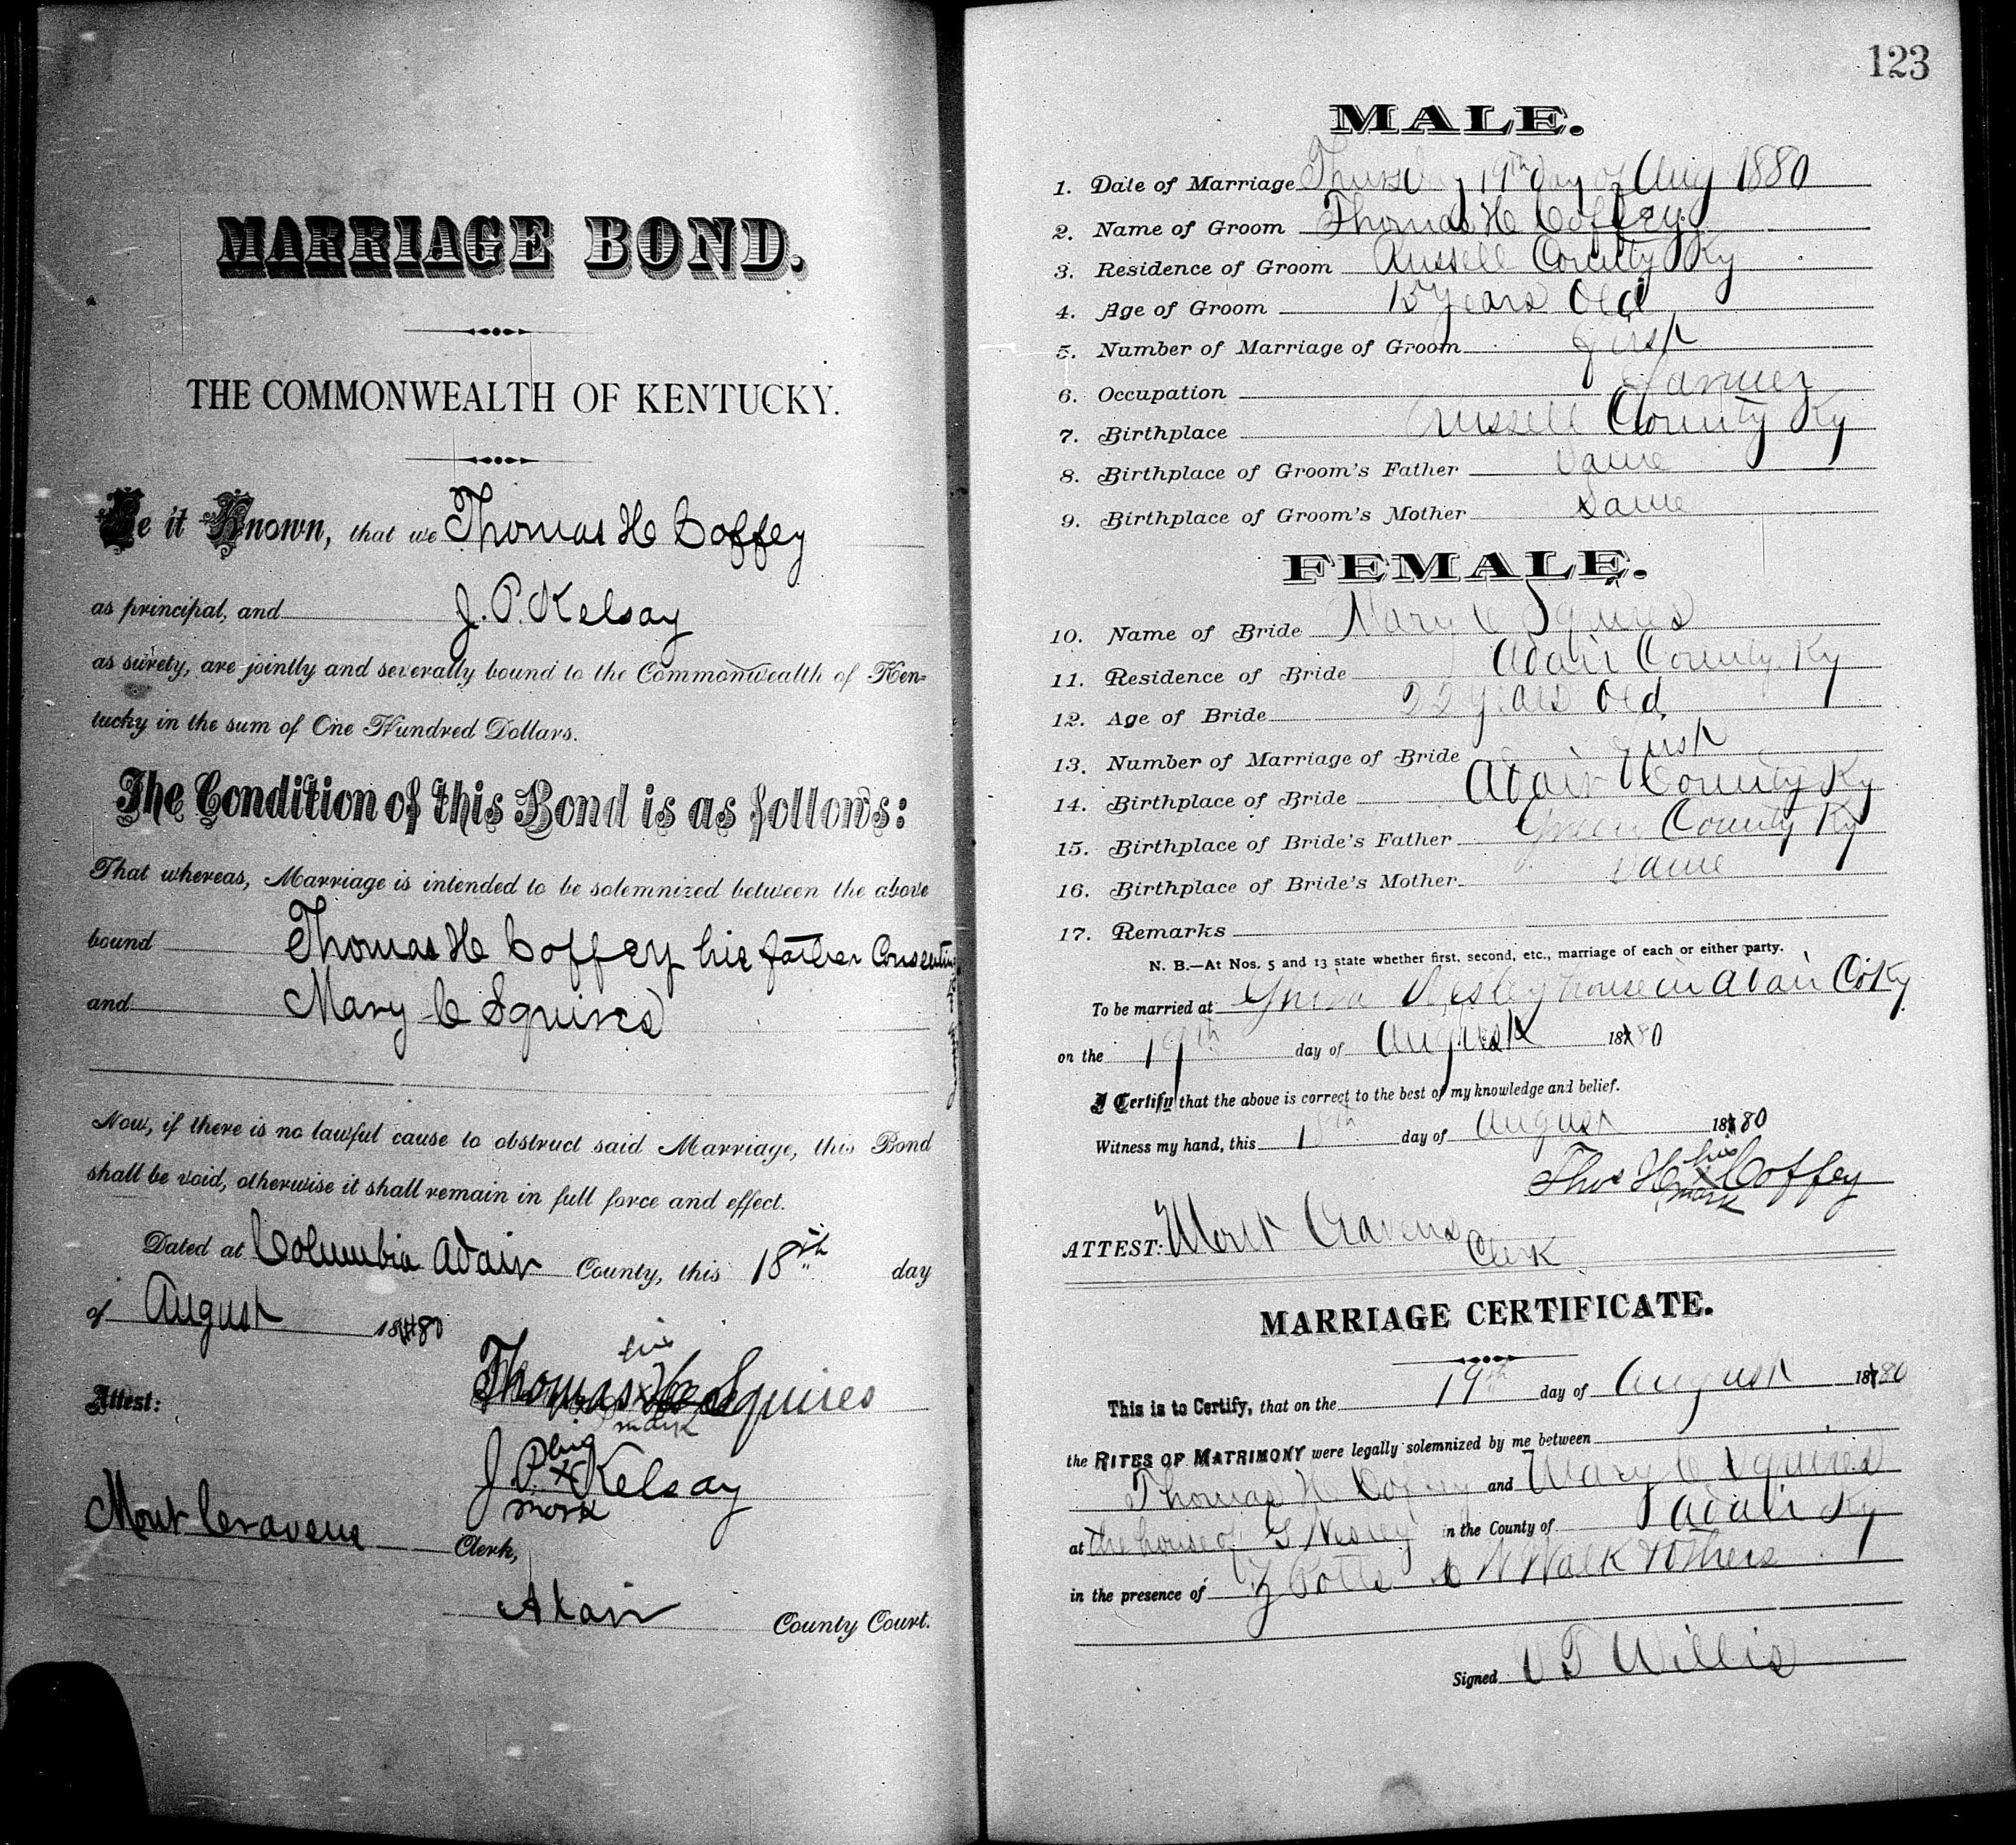 MARRIAGE BOND.
THE COMMONWEALTH OF KENTUCKY.
Be it Known, that we Thomas H Coffey
as principal, and J. P. Kelsay
as surety, are jointly and severally bound to the Commonwealth of Ken-
tucky in the sum of One Hundred Dollars.
The Condition of this Bond is as follows:
That whereas, Marriage is intended to be solemnized between the above
bound Thomas H Coffey his father Consenting
and Mary C Squires
Now, if there is no lawful cause to obstruct said Marriage, this Bond
shall be void, otherwise it shall remain in full force and effect.
Dated at Columbia Adair County, this 18th day
of August 1880
his
Thomas X Squires
mark
Attest:
his
J. P. X Kelsay
mark
Mont Cravens Clerk,
Adair County Court.
123
MALE.
1. Date of Marriage Thursday 19th day of Aug 1880
2. Name of Groom Thomas H Coffey
3. Residence of Groom Russell County Ky
4. Age of Groom 15 years Old
5. Number of Marriage of Groom first
6. Occupation Farmer
7. Birthplace Russell County Ky
8. Birthplace of Groom's Father Same
9. Birthplace of Groom's Mother Same
FEMALE.
10. Name of Bride Mary C Squires
11. Residence of Bride Adair County Ky
12. Age of Bride 22 years Old
13. Number of Marriage of Bride first
14. Birthplace of Bride Adair County Ky
15. Birthplace of Bride's Father Green County Ky
16. Birthplace of Bride's Mother Same
17. Remarks
N. B.—At Nos. 5 and 13 state whether first, second, etc., marriage of each or either party.
To be married at house in Adair Co Ky
on the 19th day of August 1880
I Certify that the above is correct to the best of my knowledge and belief.
Witness my hand, this 18th day of August 1880
his
Thos H X Coffey
mark
ATTEST: Mont Cravens
Clerk
MARRIAGE CERTIFICATE.
This is to Certify, that on the 19th day of August 1880
the RITES OF MATRIMONY were legally solemnized by me between
Thomas H Coffey and Mary C Squires
at the house of G in the County of Adair Ky
in the presence of Potts & others
Signed Willis